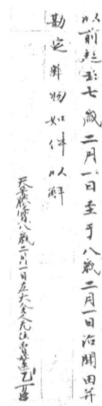 以前起去七歳二月一日至于八歳二月一日治開田并
勘定雑物如件以解
天平勝寶八歳二月一日